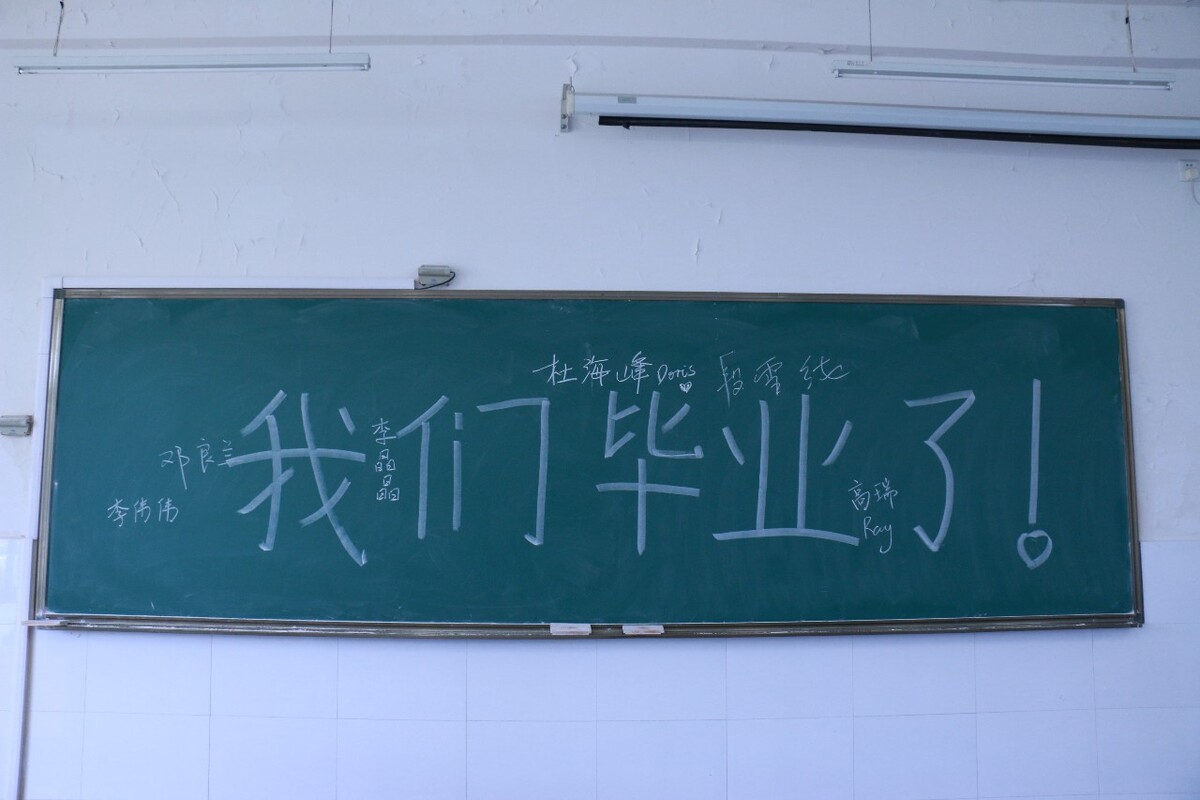 杜海峰 Doris 段雪纯
我们毕业了!
邓良兰
李晶晶
李伟伟
高瑞
Ray